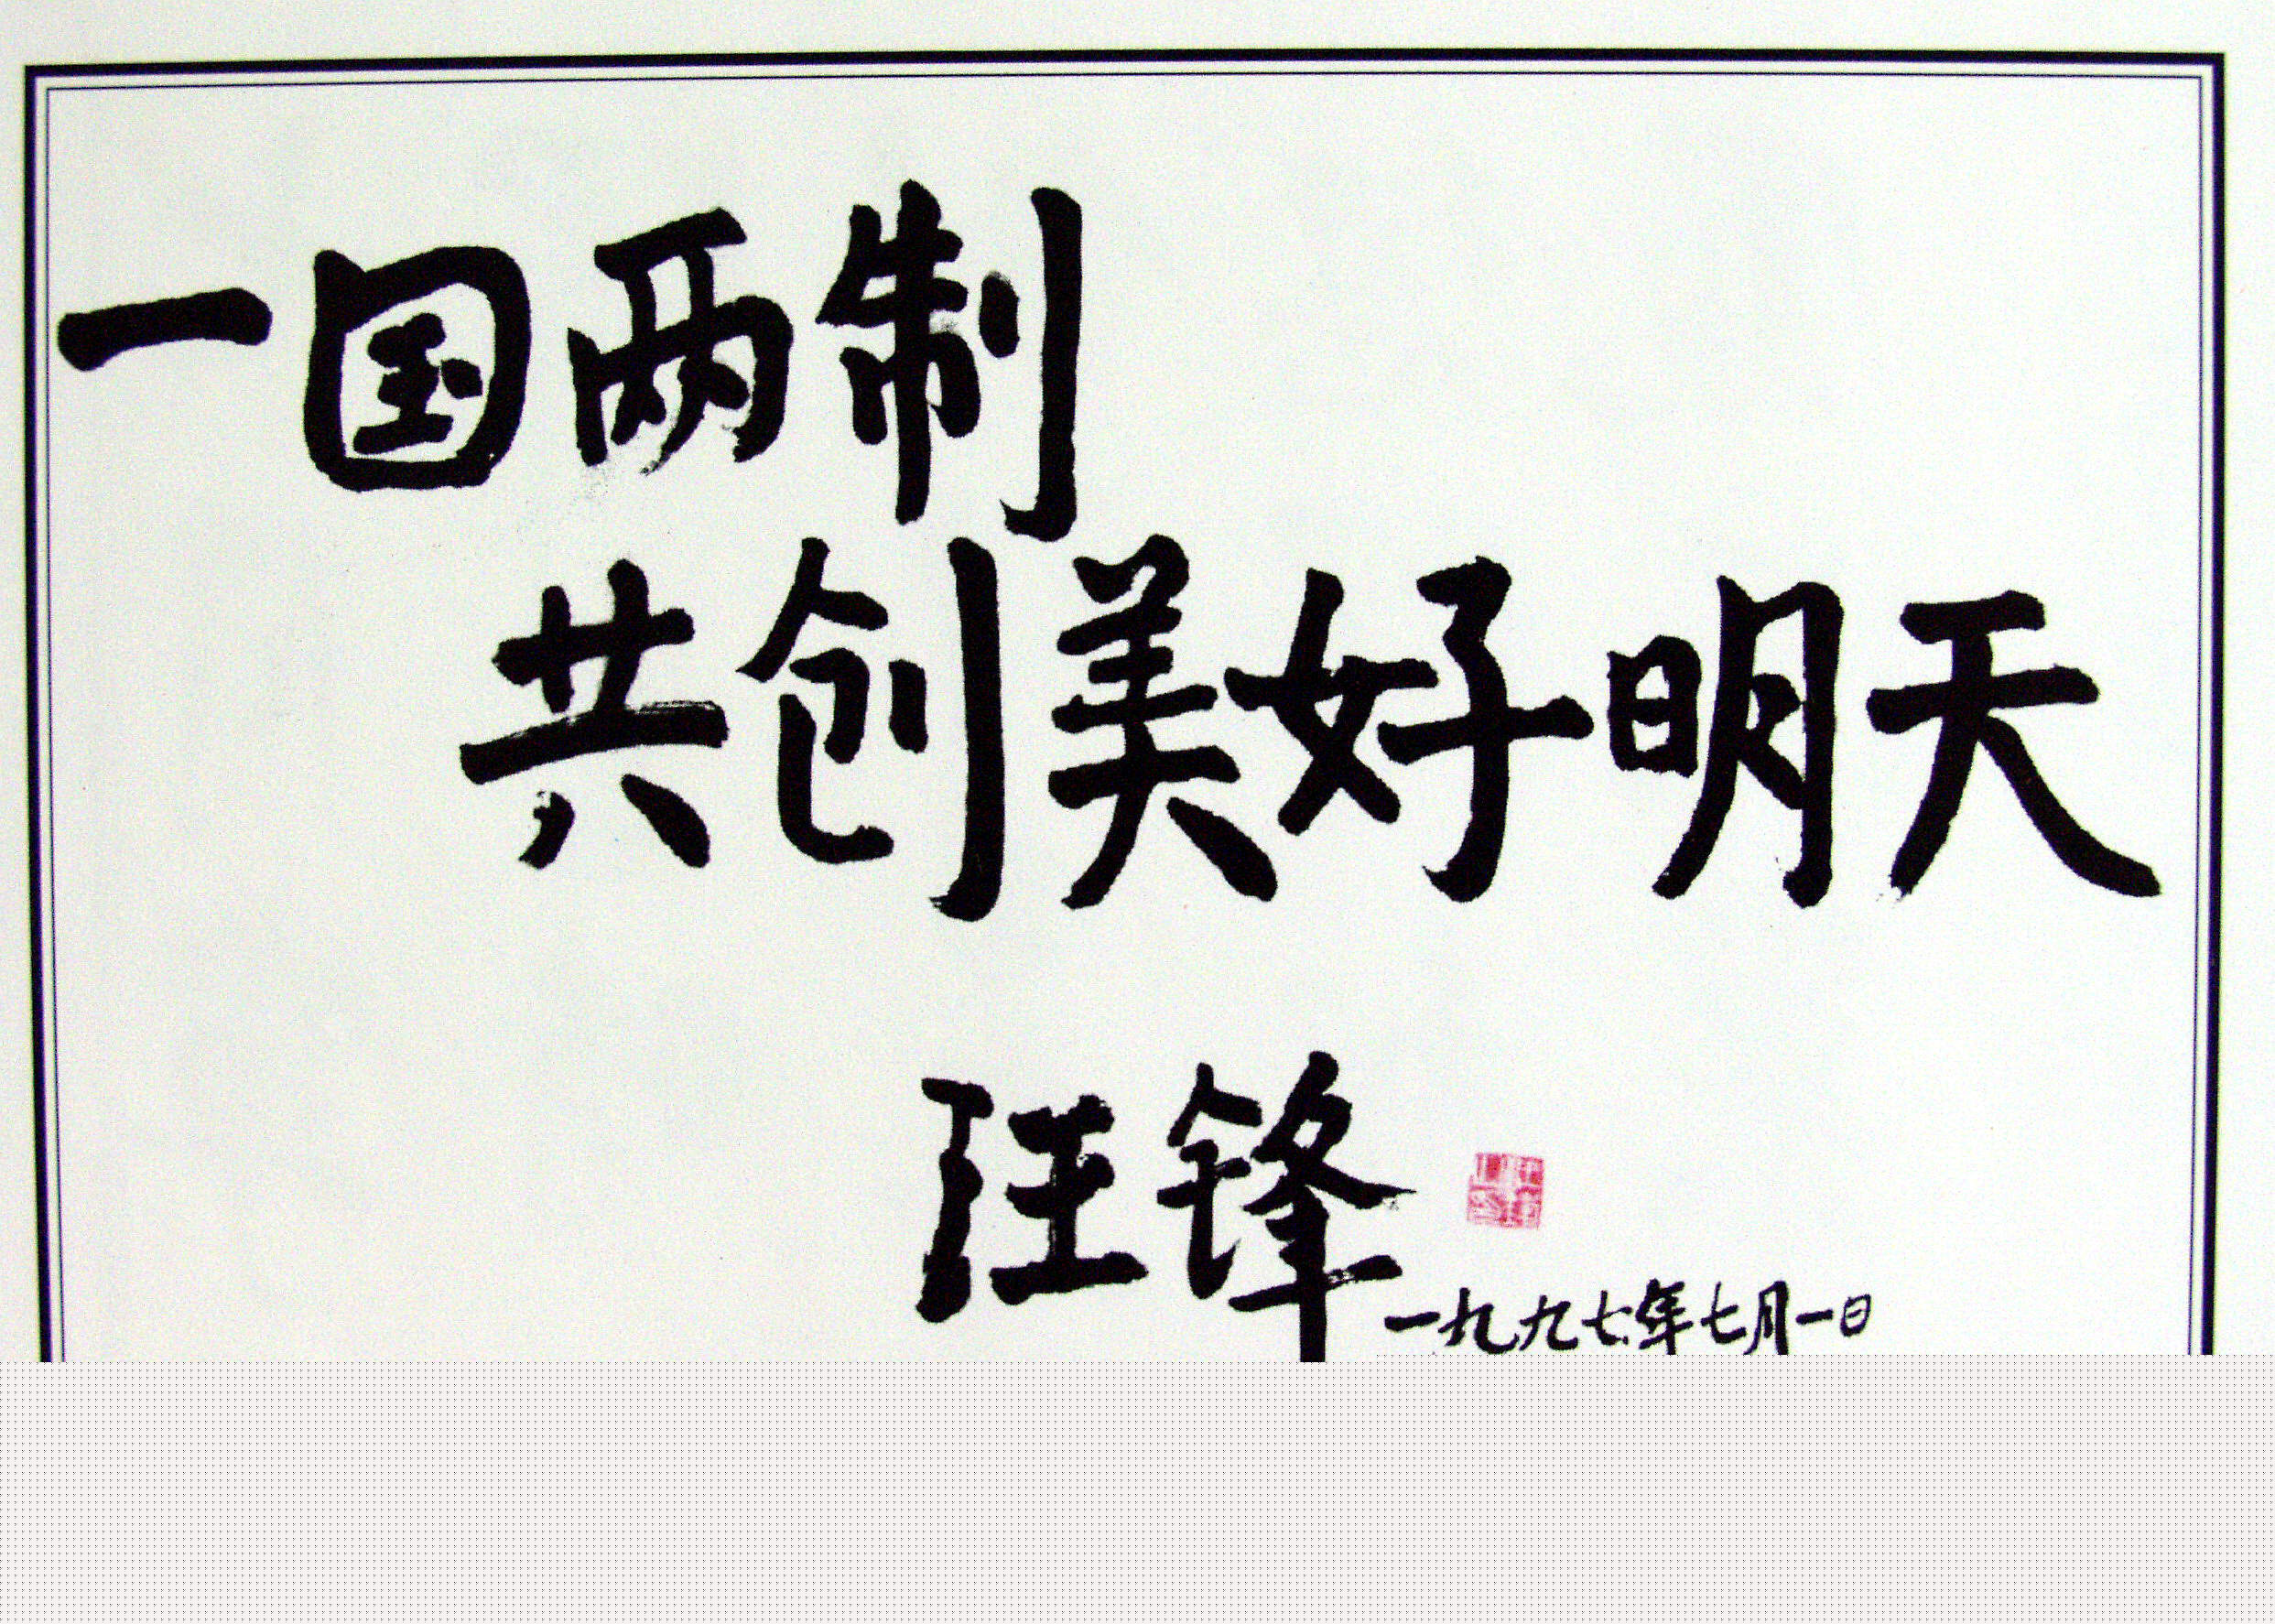 一国两制
共创美好明天
汪锋
一九九七年七月一日